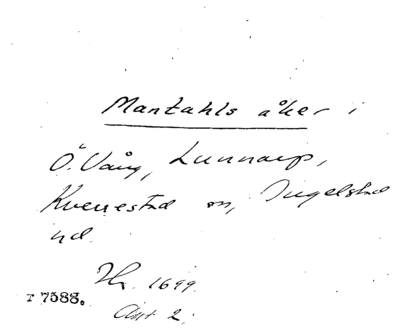 Mantahls åker i
Ö. Vång, Lunnarp,
Kverrestad sn, Ingelstad
hd.
1699.
T 7588.
Akt 2.